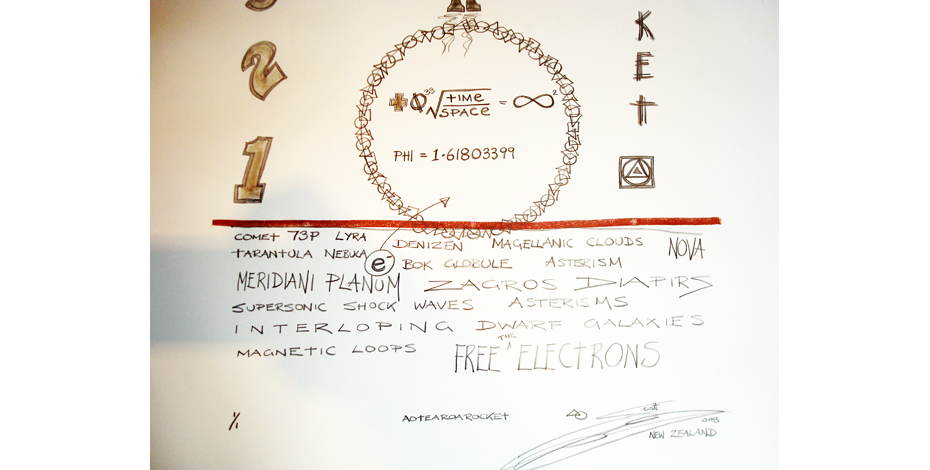 2
1
K
E
T
+Ø³³√TIME/SPACE = ∞²
PHI = 1.61803399
COMET 73P LYRA DENIZEN MAGELLANIC CLOUDS NOVA
TARANTULA NEBULA e⁻ BOK GLOBULE ASTERISM
MERIDIANI PLANUM ZAGROS DIAPIRS
SUPERSONIC SHOCK WAVES ASTERISMS
INTERLOPING DWARF GALAXIES
MAGNETIC LOOPS FREE THE ELECTRONS
1/1 AOTEAROAROCKET
NEW ZEALAND